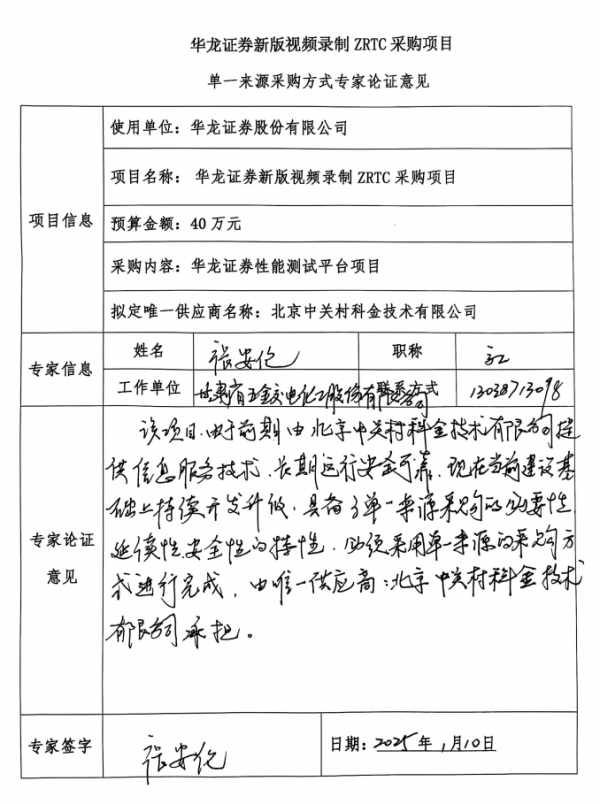 华龙证券新版视频录制 ZRTC 采购项目
单一来源采购方式专家论证意见
项目信息
使用单位：华龙证券股份有限公司
项目名称： 华龙证券新版视频录制 ZRTC 采购项目
预算金额：40 万元
采购内容：华龙证券性能测试平台项目
拟定唯一供应商名称：北京中关村科金技术有限公司
专家信息
姓名 张安伦 职称
工作单位 甘肃省五金交电化工股份有限公司 联系方式 13038713098
专家论证意见
该项目，由于前期由北京中关村科金技术有限公司提
供信息服务技术，长期运行安全可靠，现在当前建设基
础上持续开发升级，具备了单一来源采购的必要性，
延续性，安全性的特性，必须采用单一来源的采购方
式进行完成，由唯一供应商：北京中关村科金技术
有限公司承担。
专家签字 张安伦 日期：2025年1月10日